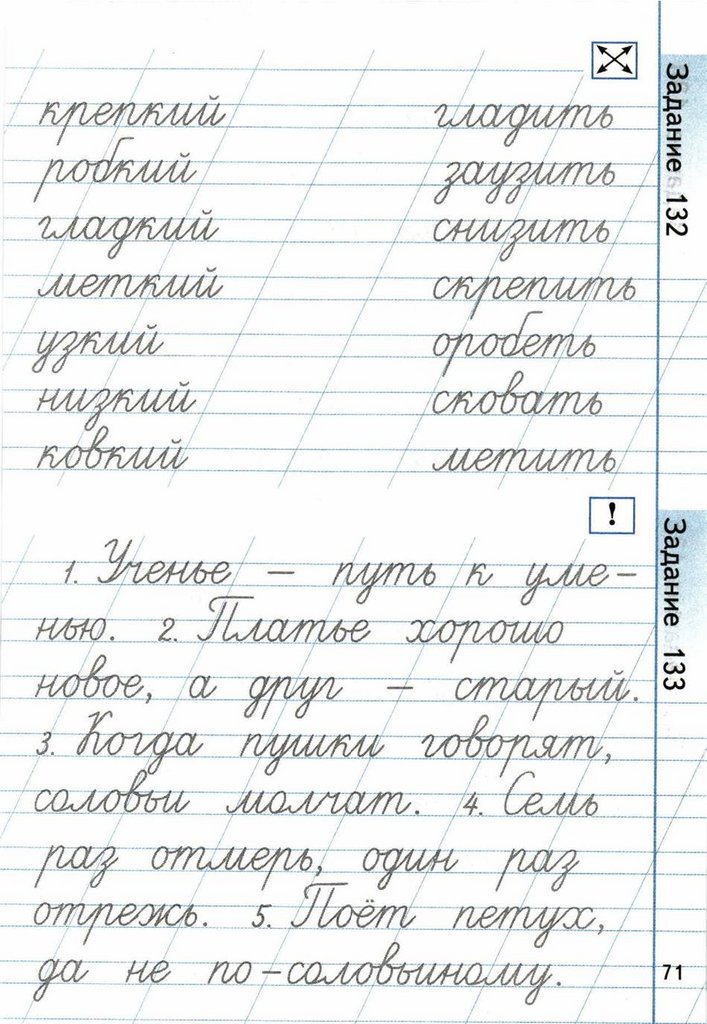 Задание 132
крепкий гладить
робкий заузить
гладкий снизить
меткий скрепить
узкий оробеть
низкий сковать
ковкий метить
Задание 133
!
1. Ученье – путь к уме-
нью. 2. Платье хорошо
новое, а друг – старый.
3. Когда пушки говорят,
соловьи молчат. 4. Семь
раз отмерь, один раз
отрежь. 5. Поёт петух,
да не по-соловьиному.
71